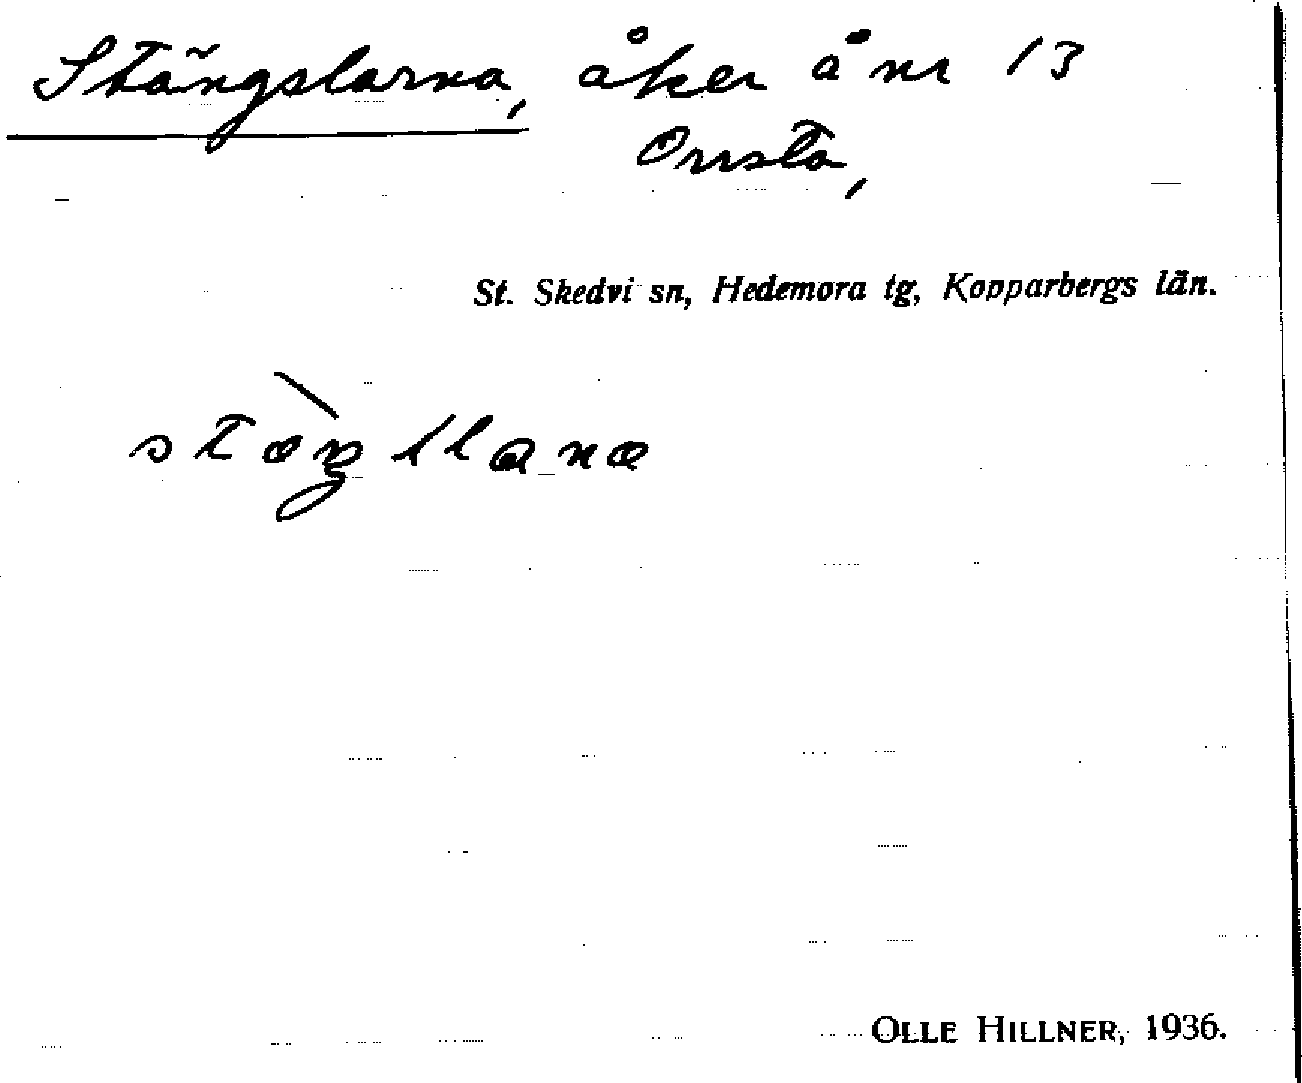 Stängslarna, åker å nr 13
Orrsta,
St. Skedvi sn, Hedemora tg, Kopparbergs län.
OLLE HILLNER, 1936.